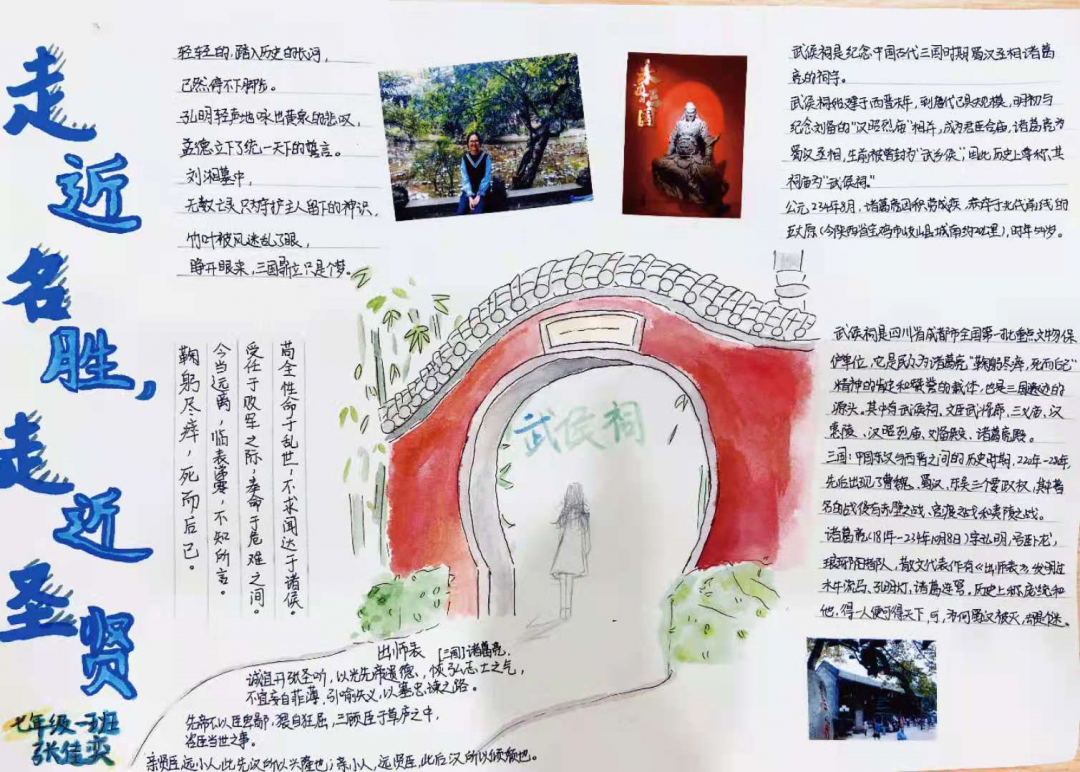 走近名胜，
走近圣贤
七年级一班
张佳奕
轻轻的，踏入历史的长河，
已然停不下脚步。
孔明轻声地咏出黄泉的悲叹，
孟德立下了统一天下的誓言。
刘湘墓中，
无数亡灵只为守护主人留下的神识，
竹叶被风迷乱了眼，
睁开眼来，三国鼎立只是个梦。
武侯祠是纪念中国古代三国时期蜀汉丞相诸葛
亮的祠宇。
武侯祠始建于西晋末年，到唐代已具规模，明初与
纪念刘备的“汉昭烈庙”相并，成为君臣合庙，诸葛亮为
蜀汉丞相，生前被曾封为“武乡侯”，因此历史上尊称其
祠庙为“武侯祠。”
公元234年8月，诸葛亮因积劳成疾，病卒于北伐前线的
五丈原（今陕西省宝鸡市岐山县城南约20公里），时年54岁。
苟全性命于乱世，不求闻达于诸侯。
受任于败军之际，奉命于危难之间。
今当远离，临表涕零，不知所言。
鞠躬尽瘁，死而后已。
武侯祠
武侯祠是四川省成都市全国第一批重点文物保
护单位，它是民众为诸葛亮“鞠躬尽瘁，死而后已”
精神的肯定和赞誉的载体，也是三国遗迹的
源头。其中有武侯祠、文臣武将廊、三义庙、汉
惠陵、汉昭烈庙、刘备殿、诸葛亮殿。
三国：中国东汉与西晋之间的历史时期，220年-280年，
先后出现了曹魏、蜀汉、东吴三个政权，其中著
名的战役有赤壁之战、官渡之战和夷陵之战。
诸葛亮（181年-234年10月8日）字孔明，号卧龙，
琅琊阳都人，散文代表作有《出师表》，发明过
木牛流马、孔明灯，诸葛连弩。历史上称庞统和
他，得一人便可得天下，可，为何蜀汉被灭，
出师表 [三国]诸葛亮
诚宜开张圣听，以光先帝遗德、恢弘志士之气，
不宜妄自菲薄，引喻失义，以塞忠谏之路。
先帝不以臣卑鄙，猥自枉屈，三顾臣于草庐之中，
咨臣当世之事。
亲贤臣，远小人，此先汉所以兴隆也；亲小人，远贤臣，此后汉所以倾颓也。